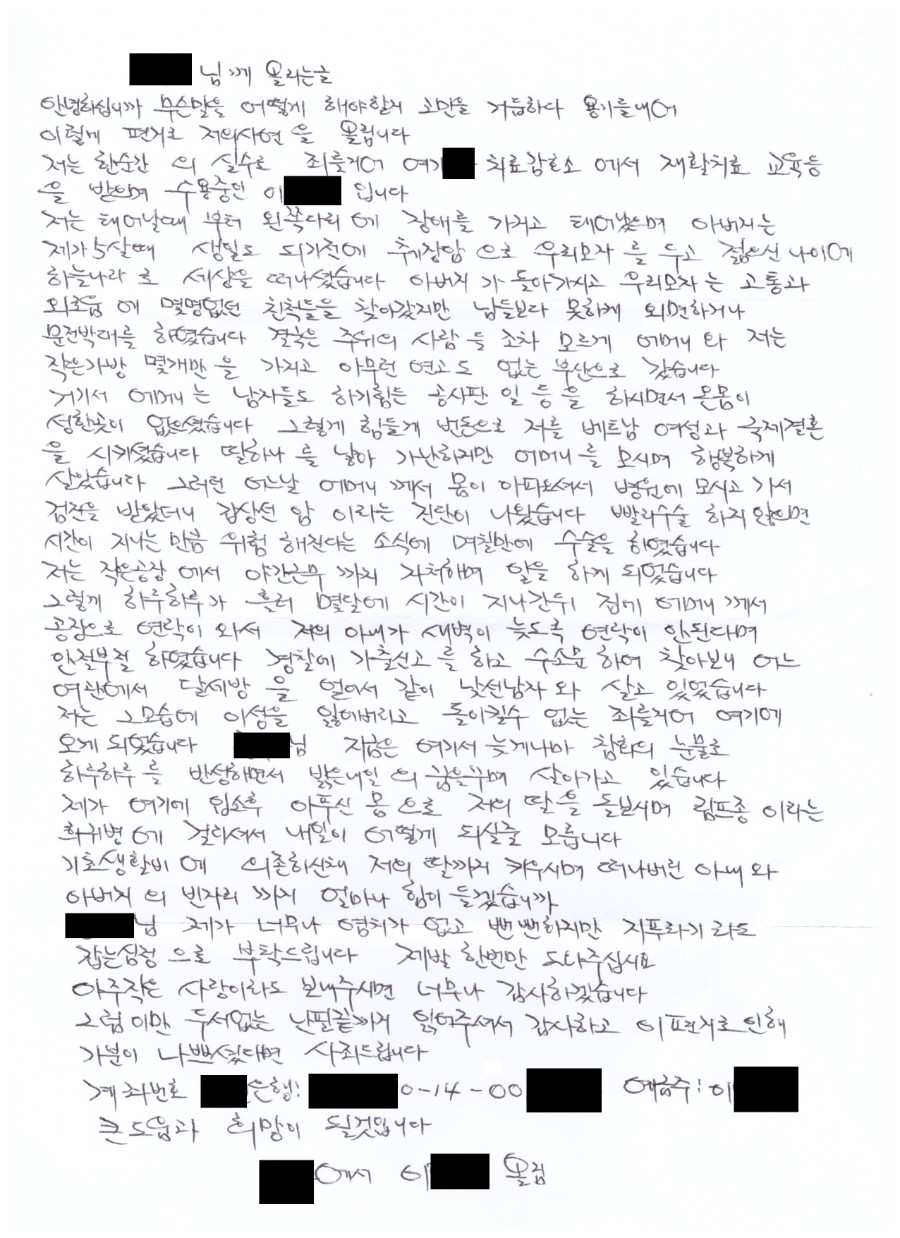 님께 올리는글
안녕하십니까 무슨말을 어떻게 해야할지 고민을 거듭하다 용기를내어
이렇게 편지로 저의사연을 올립니다
저는 한순간의 실수로 죄를지어 여기 치료감호소에서 재활치료 교육등
을 받으며 수용중인 이 입니다
저는 태어날때부터 왼쪽다리에 장애를 가지고 태어났으며 아버지는
제가 5살때 생일도 되기전에 췌장암으로 우리모자를 두고 젊으신 나이에
하늘나라로 세상을 떠나셨습니다 아버지가 돌아가시고 우리모자는 고통과
외로움에 몇몇없던 친척들을 찾아갔지만 남들보다 못하게 외면하거나
문전박대를 하였습니다 결국은 주위의 사람들 조차 모르게 어머니와 저는
작은가방 몇개만을 가지고 아무런 연고도 없는 부산으로 갔습니다
거기서 어머니는 남자들도 하기힘든 공사판 일등을 하시면서 온몸이
성한곳이 없으셨습니다 그렇게 힘들게 번돈으로 저를 베트남 여성과 국제결혼
을 시키셨습니다 딸하나를 낳아 가난하지만 어머니를 모시며 행복하게
살았습니다 그러던 어느날 어머니께서 몸이 아파오셔서 병원에 모시고 가서
검진을 받았더니 갑상선 암 이라는 진단이 나왔습니다 빨리수술 하지않으면
시간이 지나는 만큼 위험해진다는 소식에 며칠만에 수술을 하였습니다
저는 작은공장에서 야간근무까지 자처하며 일을 하게 되었습니다
그렇게 하루하루가 흘러 몇달에 시간이 지나간뒤 집에 어머니께서
공장으로 연락이 와서 저의 아내가 새벽이 늦도록 연락이 안된다며
안절부절 하였습니다 경찰에 가출신고를 하고 수소문하여 찾아보니 어느
여관에서 달세방을 얻어서 같이 낯선남자와 살고 있었습니다
저는 그모습에 이성을 잃어버리고 돌이킬수 없는 죄를지어 여기에
오게 되었습니다 님 지금은 여기서 늦게나마 참회의 눈물로
하루하루를 반성하면서 밝은내일의 꿈을꾸며 살아가고 있습니다
제가 여기에 입소후 아푸신 몸으로 저의 딸을 돌보시며 림프종 이라는
희귀변에 걸리셔서 내일이 어떻게 되실줄 모릅니다
기초생활비에 의존하신채 저의 딸까지 키우시며 떠나버린 아내와
아버지의 빈자리까지 얼마나 힘이 들겠습니까
님 제가 너무나 염치가 없고 뻔뻔하지만 지푸라기라도
잡는심정으로 부탁드립니다 제발 한번만 도와주십시요
아주작은 사랑이라도 보내주시면 너무나 감사하겠습니다
그럼이만 두서없는 난필끝까지 읽어주셔서 감사하고 이편지로 인해
기분이 나쁘셨다면 사죄드립니다
계좌번호 은행: 0-14-00 예금주: 이
큰도움과 희망이 될것입니다
에서 이 올림